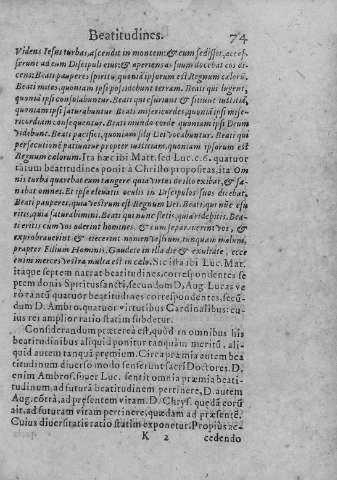 Beatitudines. 74
Videns Iesus turbas, ascendit in montem: & cum sedisset, accesserunt
ad eum Discipuli eius: & aperiens os suum docebat eos dicens:
Beati pauperes spiritu, quoniā ipsorum est Regnum cælorū,
Beati mites, quoniam ipsi possidebunt terram. Beati qui lugent,
quoniā ipsi consolabuntur. Beati qui esuriunt & sitiunt iustitiā,
quoniam ipsi saturabuntur. Beati misericordes, quoniā ipsi misericordiam
consequentur. Beati mundo corde quoniam ipsi Deum
videbunt. Beati pacifici, quoniam filij Dei vocabuntur. Beati qui
persecutionē patiuntur propter iustitiam, quoniam ipsorum est
Regnum cælorum. Ita hæc ibi Matt. sed Luc. c. 6. quatuor
tātum beatitudines ponit à Christo propositas, ita Omnis
turba quærebat eum tangere quia virtus de illo exibat, & sanabat
omnes. Et ipse eleuatis oculis in Discipulos suos dicebat,
Beati pauperes, quia vestrum est Regnum Dei. Beati, qui nūc esuritis,
quia saturabimini. Beati qui nunc fletis, quia ridebitis. Beati
eritis cum vos oderint homines, & cum separauerint vos, &
exprobrauerint & eiecerint nomen vestrum, tanquam malum,
propter Filium Hominis, Gaudete in illa die & exultate, ecce
enim merces vestra multa est in cælo. Sic ista ibi Luc. Mat.
itaque septem narrat beatitudines, correspondentes septem
donis Spiritus sancti, secundum D, Aug. Lucas verò
tantū quatuor beatitudines correspondentes, secūdum
D. Ambro. quatuor virtutibus Cardinalibus: cuius
rei amplior ratio statim subdetur.
Considerandum præterea est, quòd in omnibus his
beatitudinibus aliquid ponitur tanquàm meritū, aliquid
autem tanquā premium. Circa præmia autem beatitudinum
diuerso modo senserunt sacri Doctores. D.
enim Ambros. super Luc. sentit omnia præmia beatitudinum,
ad futurā beatitudinem pertinere, D. autem
Aug. cōtrà, ad presentem vitam. D. Chrys. quædā eorū
ait, ad futuram vitam pertinere, quædam ad præsentē.
Cuius diuersitatis ratio statim exponetur. Propiùs ac-
K 2 cedendo